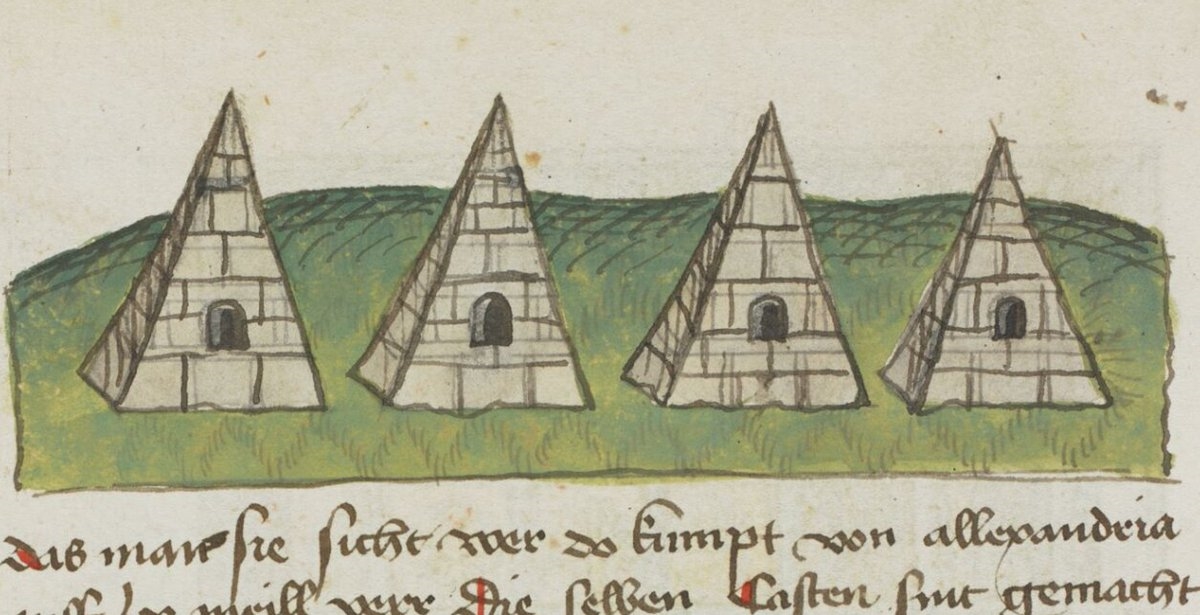 das man sie sicht wer do kumpt von allexandria
meill verr die selben Casten sint gemacht